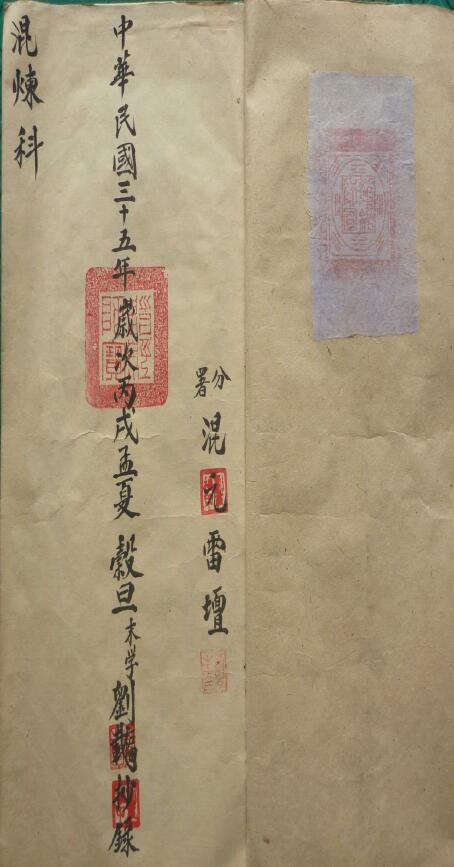 分署混元雷壇
中華民國三十五年歲次丙戌孟夏 穀旦 末学劉抄錄
混煉科